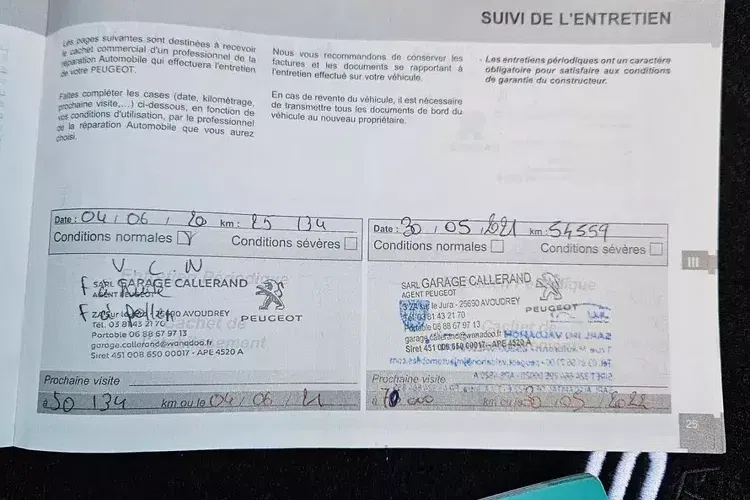 SUIVI DE L'ENTRETIEN
Les pages suivantes sont destinées à recevoir
le cachet commercial d'un professionnel de la
réparation Automobile qui effectuera l'entretien
de votre PEUGEOT.
Faites compléter les cases (date, kilométrage,
prochaine visite,...) ci-dessous, en fonction de
vos conditions d'utilisation, par le professionnel
de la réparation Automobile que vous aurez
choisi.
Nous vous recommandons de conserver les
factures et les documents se rapportant à
l'entretien effectué sur votre véhicule.
En cas de revente du véhicule, il est nécessaire
de transmettre tous les documents de bord du
véhicule au nouveau propriétaire.
Les entretiens périodiques ont un caractère
obligatoire pour satisfaire aux conditions
de garantie du constructeur.
Date : 04 / 06 / 20 km : 25 134
Conditions normales Conditions sévères
V C N
SARL GARAGE CALLERAND
AGENT PEUGEOT
F à
F à Pollen
25690 AVOUDREY
Tél. 03 81 43 21 70
Portable 06 88 67 97 13
garage.callerand@wanadoo.fr
Siret 451 008 650 00017 - APE 4520 A
PEUGEOT
Prochaine visite
à 50 134 km ou le 04 / 06 / 21
Date : 30 / 05 / 2021 km : 54559
Conditions normales Conditions sévères
SARL GARAGE CALLERAND
AGENT PEUGEOT
le Jura - 25690 AVOUDREY
Tél. 03 81 43 21 70
Portable 06 88 67 97 13
garage.callerand@wanadoo.fr
Siret 451 008 650 00017 - APE 4520 A
PEUGEOT
Prochaine visite
à 70 000 km ou le 30 / 05 / 2022
III
25